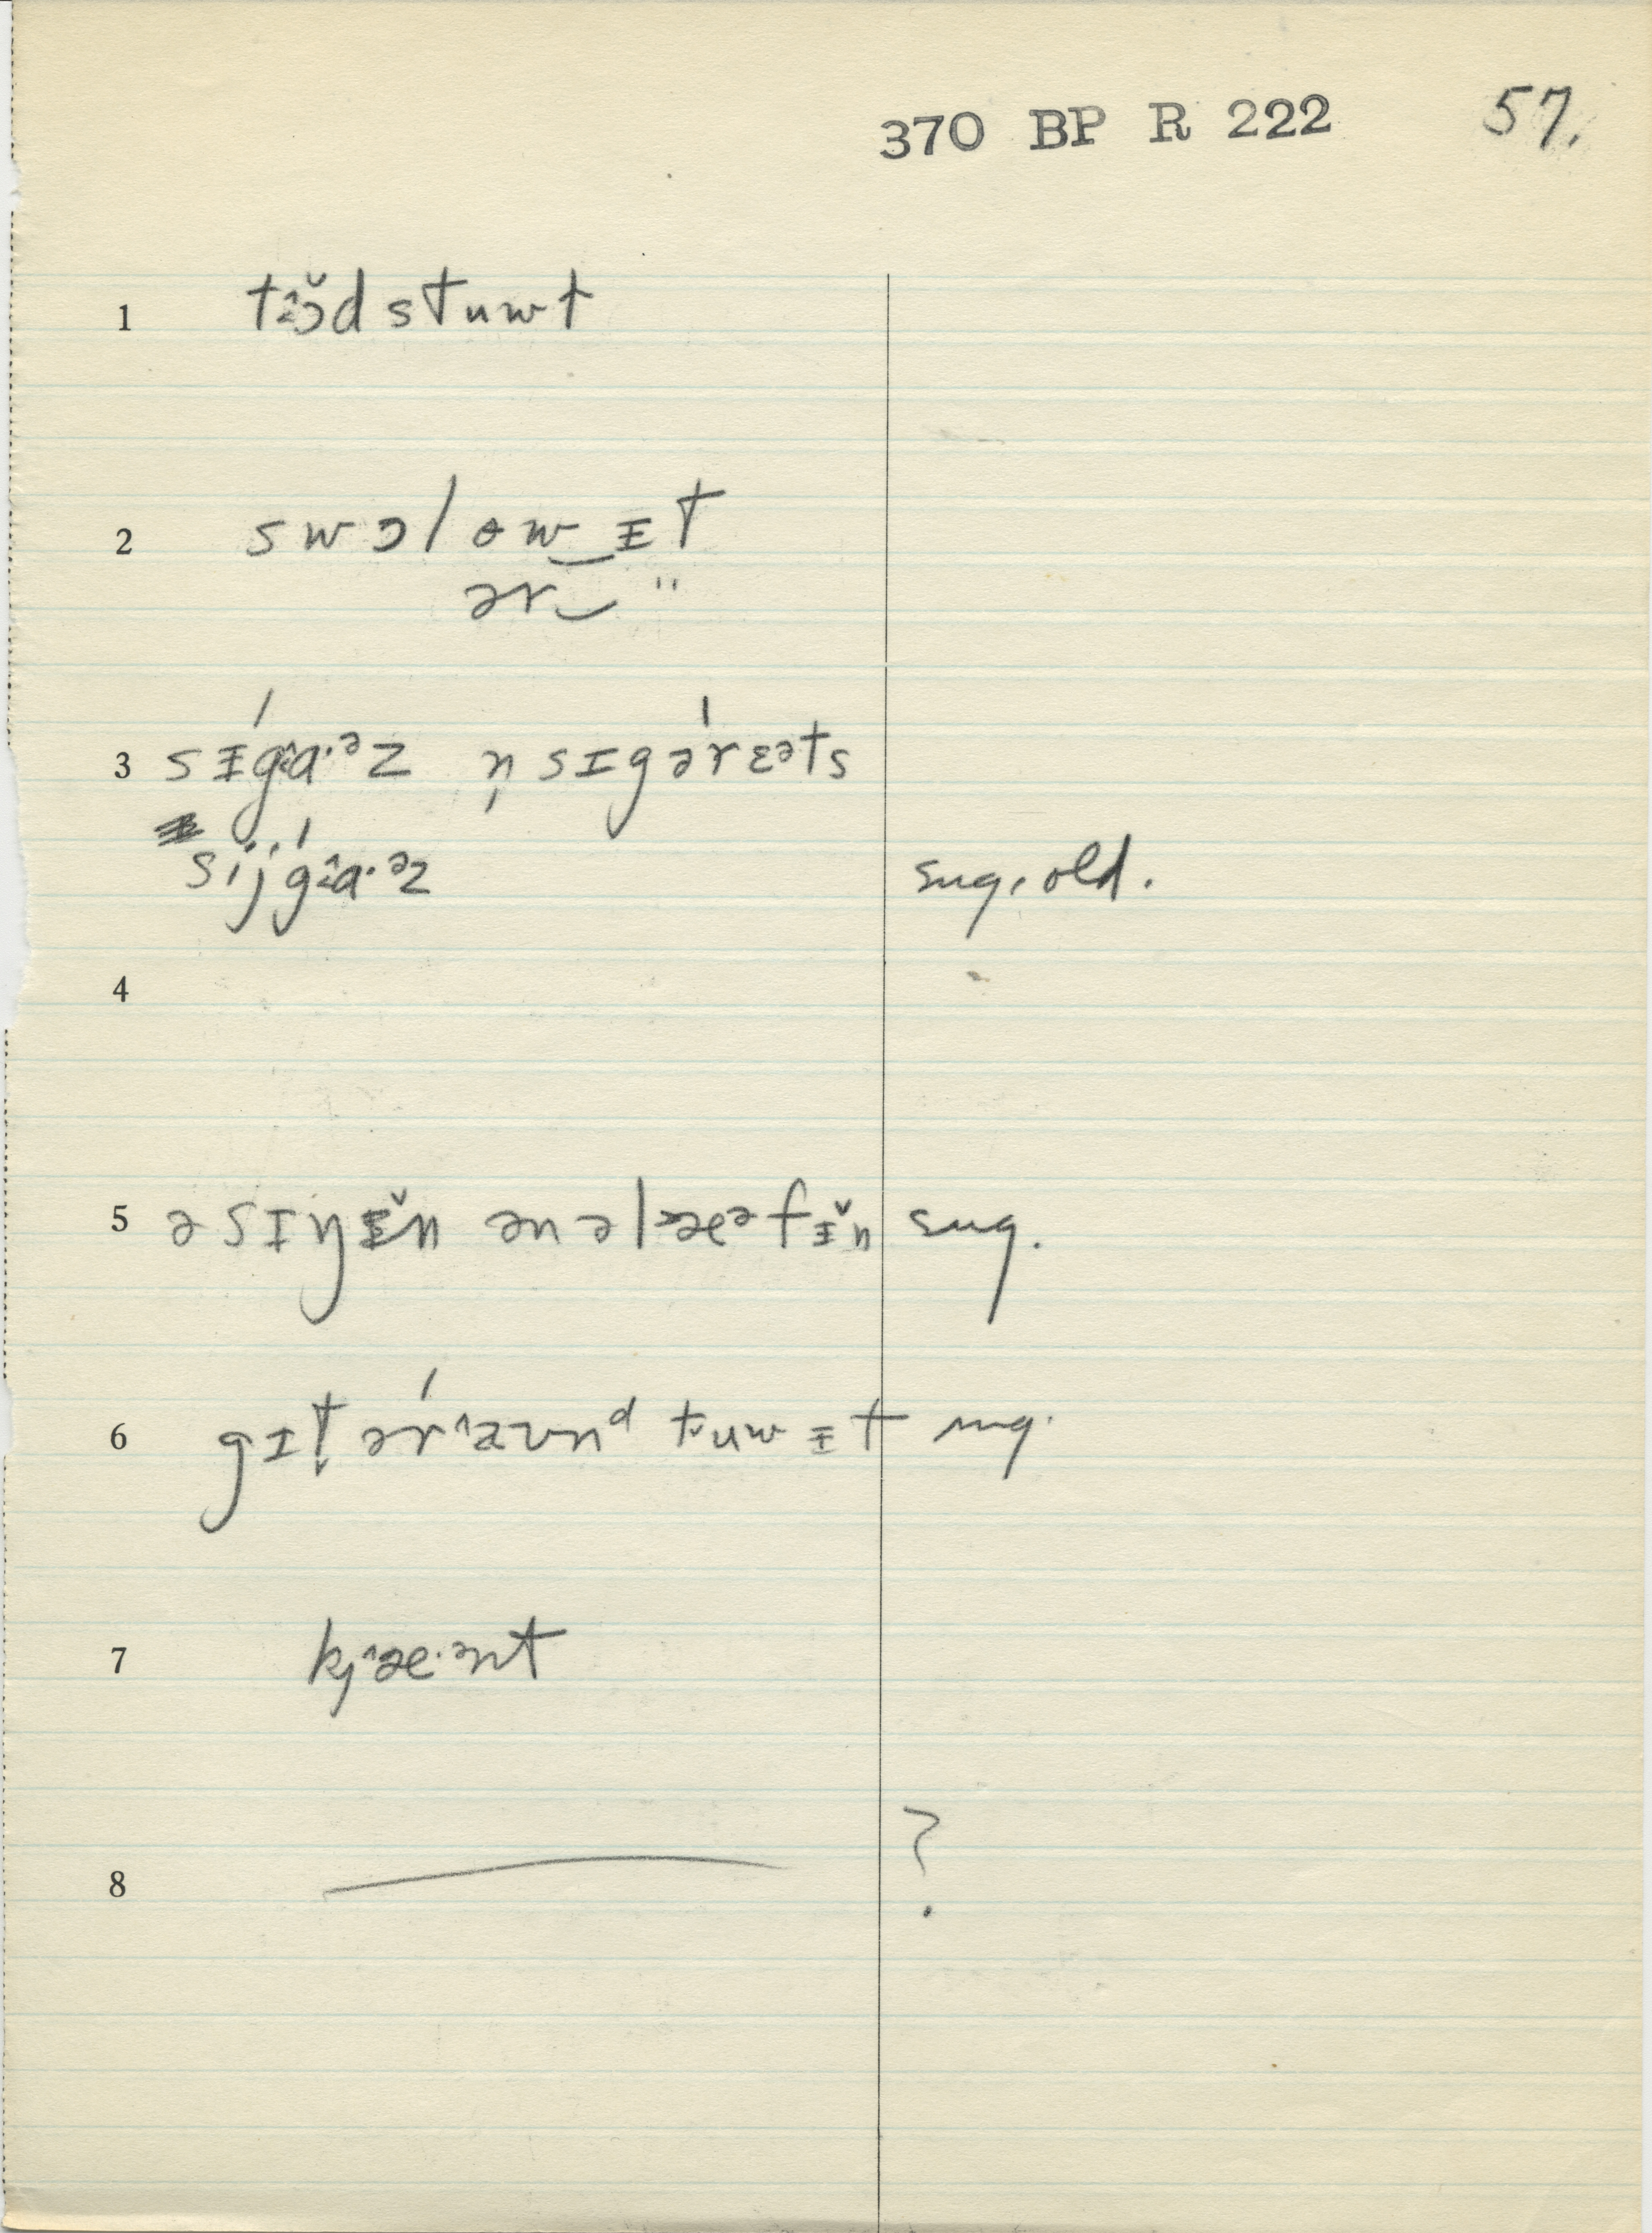 370 BP R 222 57.
1 tɔ̆d stuwt
2 swɔl ɵw‿ᵻt
ər‿ "
3 sᵻ́gɑ·ᵊz n̩ sɪgə́rɛəts
síjgɑ́·ᵊz sug. old.
4
5 ə sɪŋᵻ̆n ən ə læᵊfᵻ̆n sug.
6 gɪt̬ ərᶺaʊnᵈ tʉuwᵻt sug.
7 kjᶺæ·ənt
8 — ?